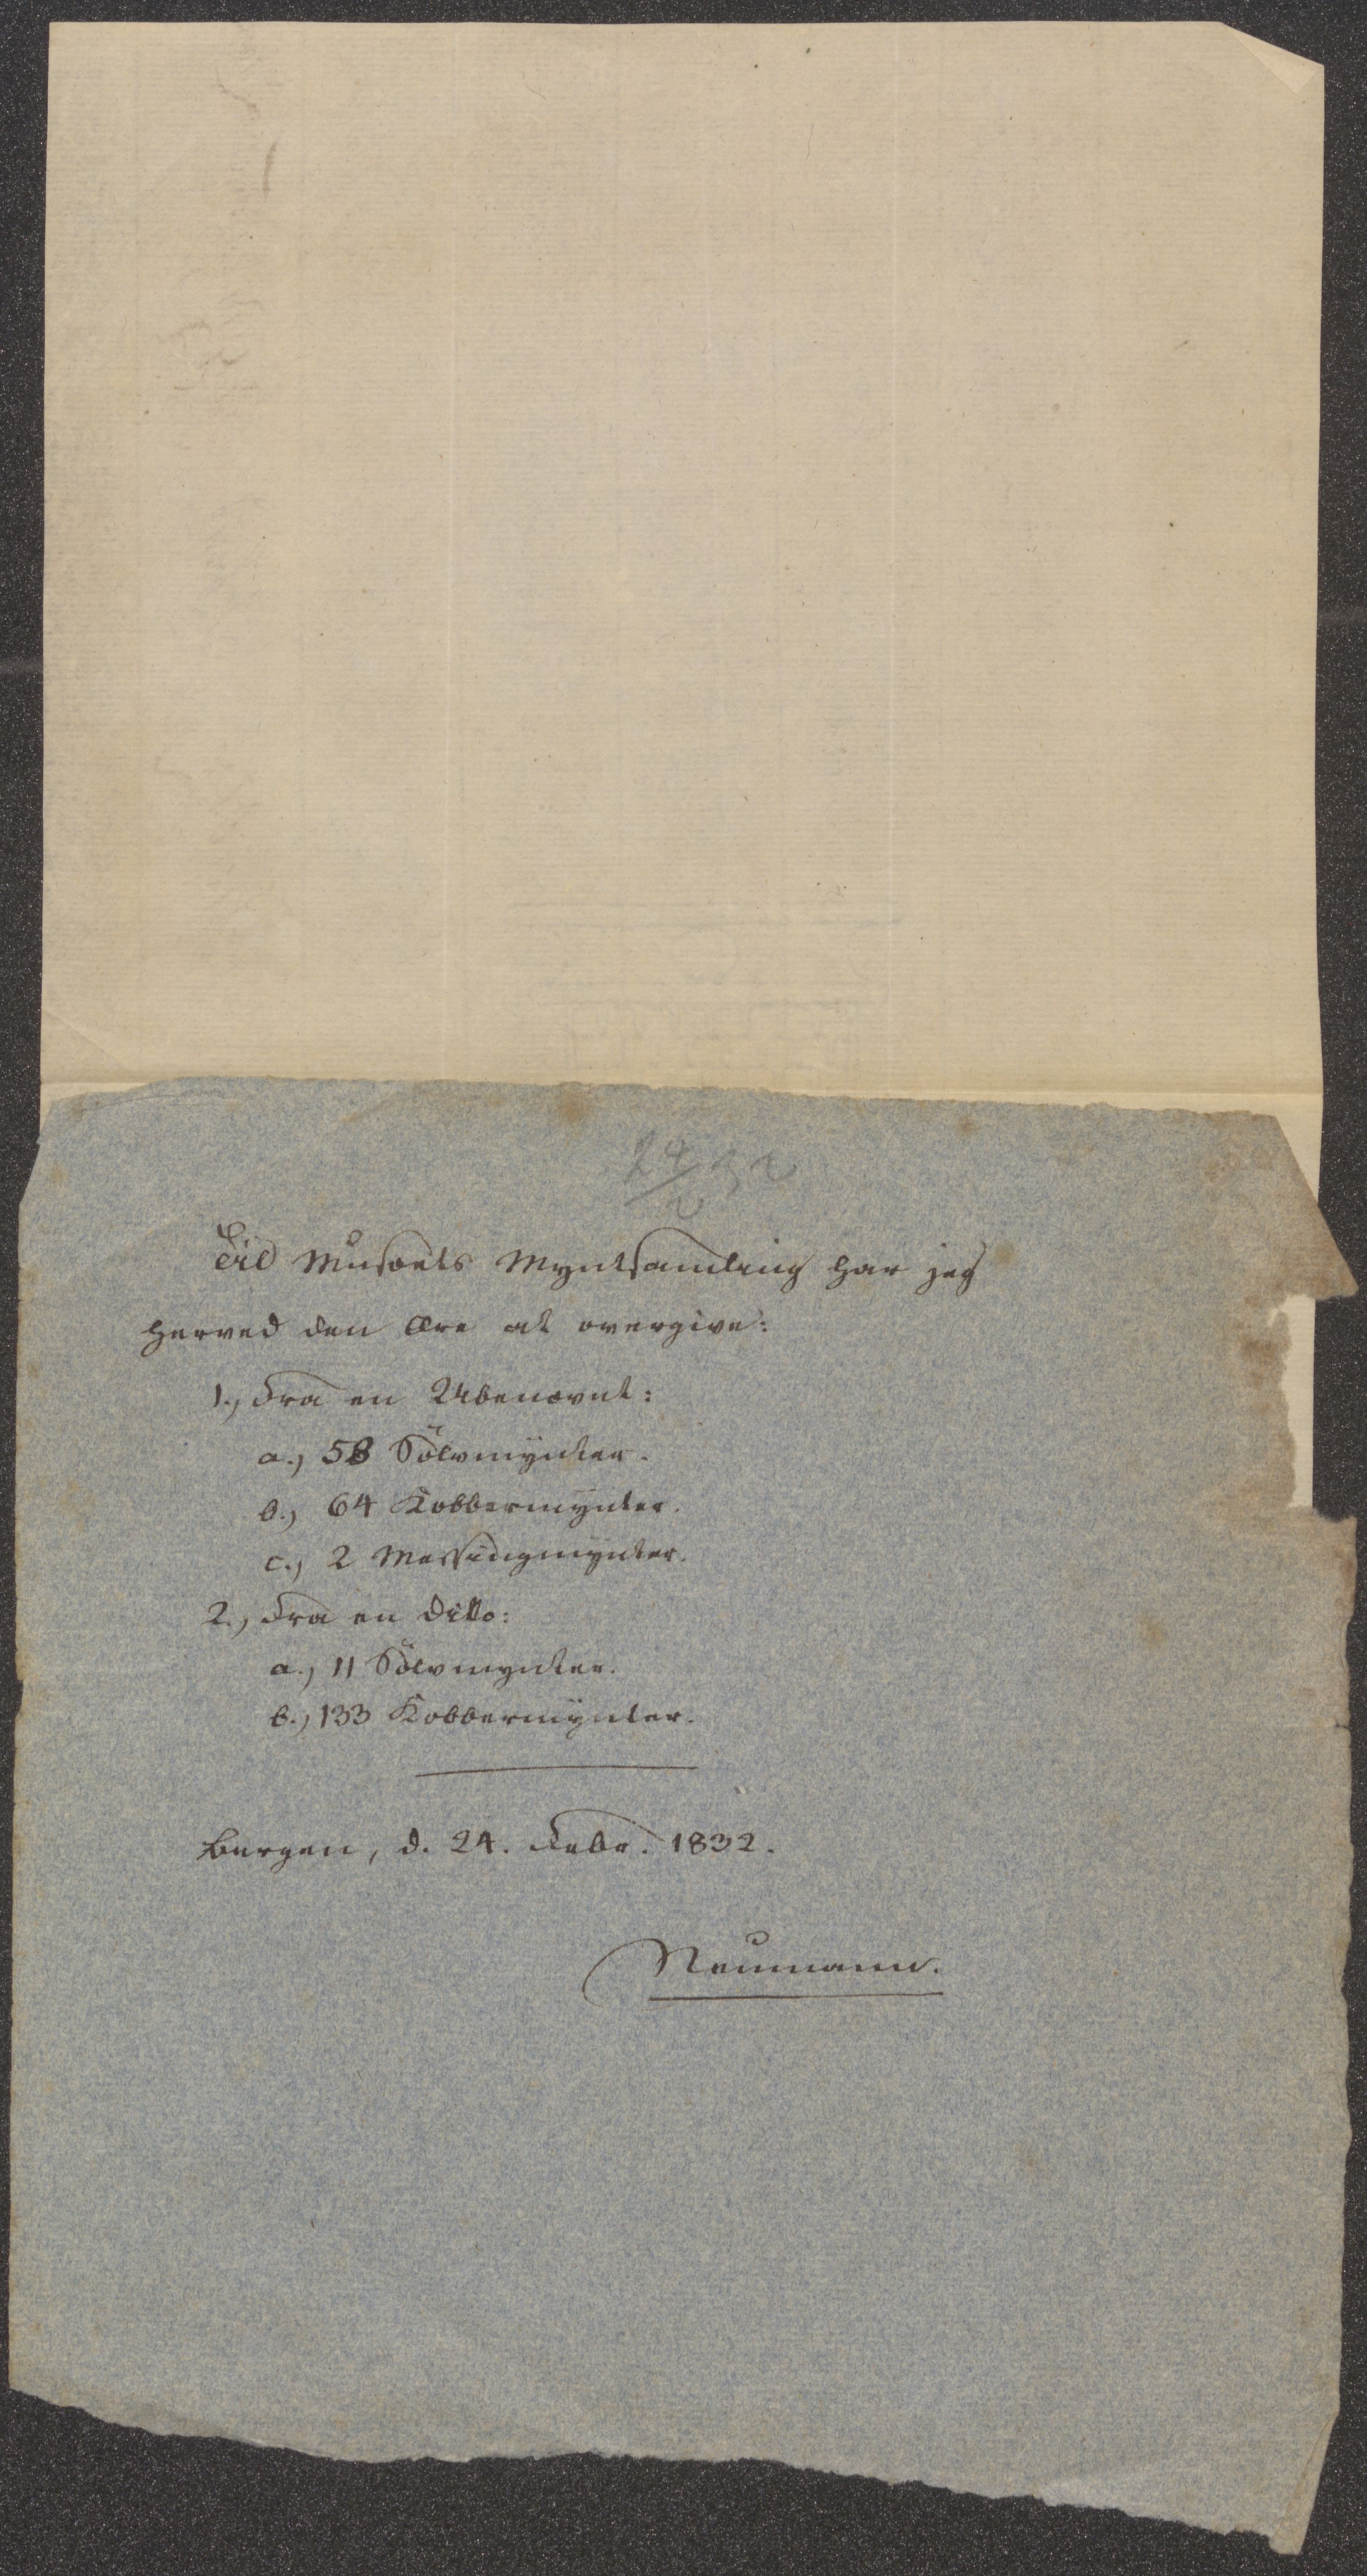 24/2 32
Til Museets Myntsamling har jeg
herved den Ære at overgive:
1.) Fra en Ubenævnt:
a.) 58 Sölvmynter.
b.) 64 Kobbermynter.
c.) 2 Messingmynter.
2.) Fra en Ditto:
a.) 11 Sölvmynter.
b.) 133 Kobbermynter.
Bergen, d. 24. Febr. 1832.
Neumann.